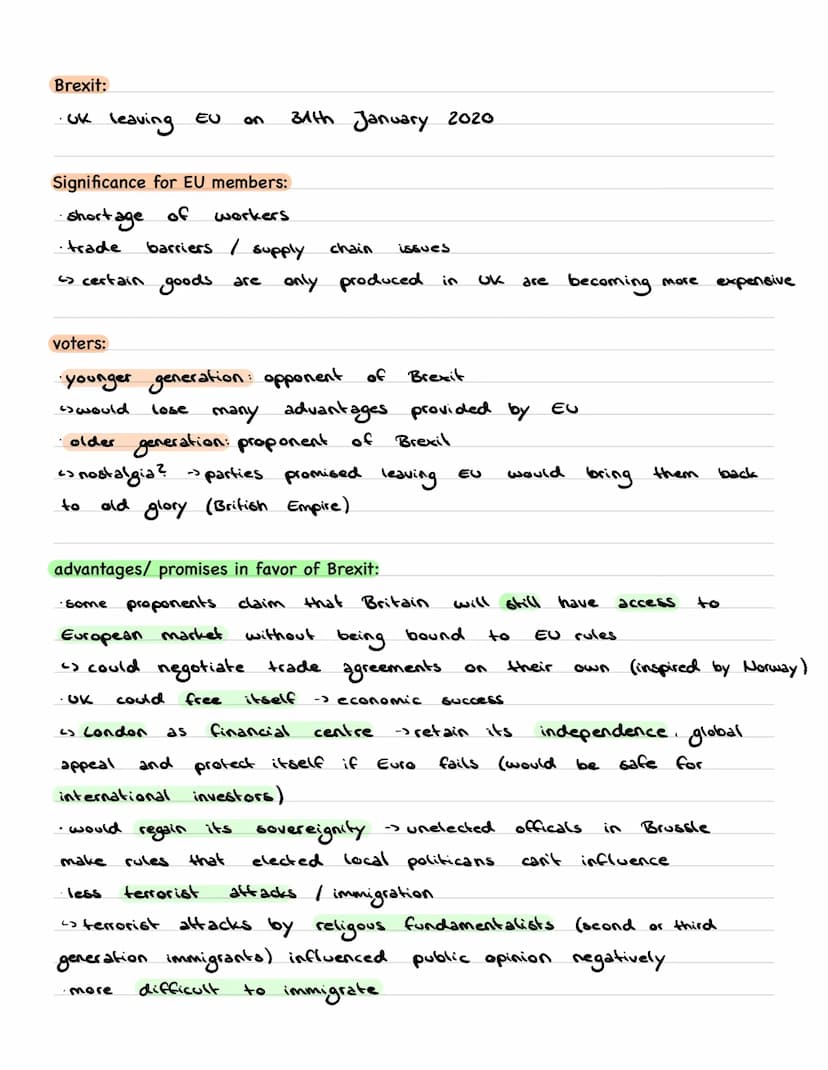 Brexit:
· UK leaving EU on 31th January 2020
Significance for EU members:
· shortage of workers
· trade barriers / supply chain issues
↳ certain goods are only produced in UK are becoming more expensive
voters:
· younger generation: opponent of Brexit
↳ would lose many advantages provided by EU
· older generation: proponent of Brexit
↳ nostalgia? → parties promised leaving EU would bring them back
to old glory (British Empire)
advantages/ promises in favor of Brexit:
· some proponents claim that Britain will still have access to
European market without being bound to EU rules
↳ could negotiate trade agreements on their own (inspired by Norway)
· UK could free itself → economic success
↳ London as financial centre → retain its independence, global
appeal and protect itself if Euro fails (would be safe for
international investors)
· would regain its sovereignity → unelected officals in Brussle
make rules that elected local politicans can't influence
· less terrorist attacks / immigration
↳ terrorist attacks by religous fundamentalists (second or third
generation immigrants) influenced public opinion negatively
· more difficult to immigrate